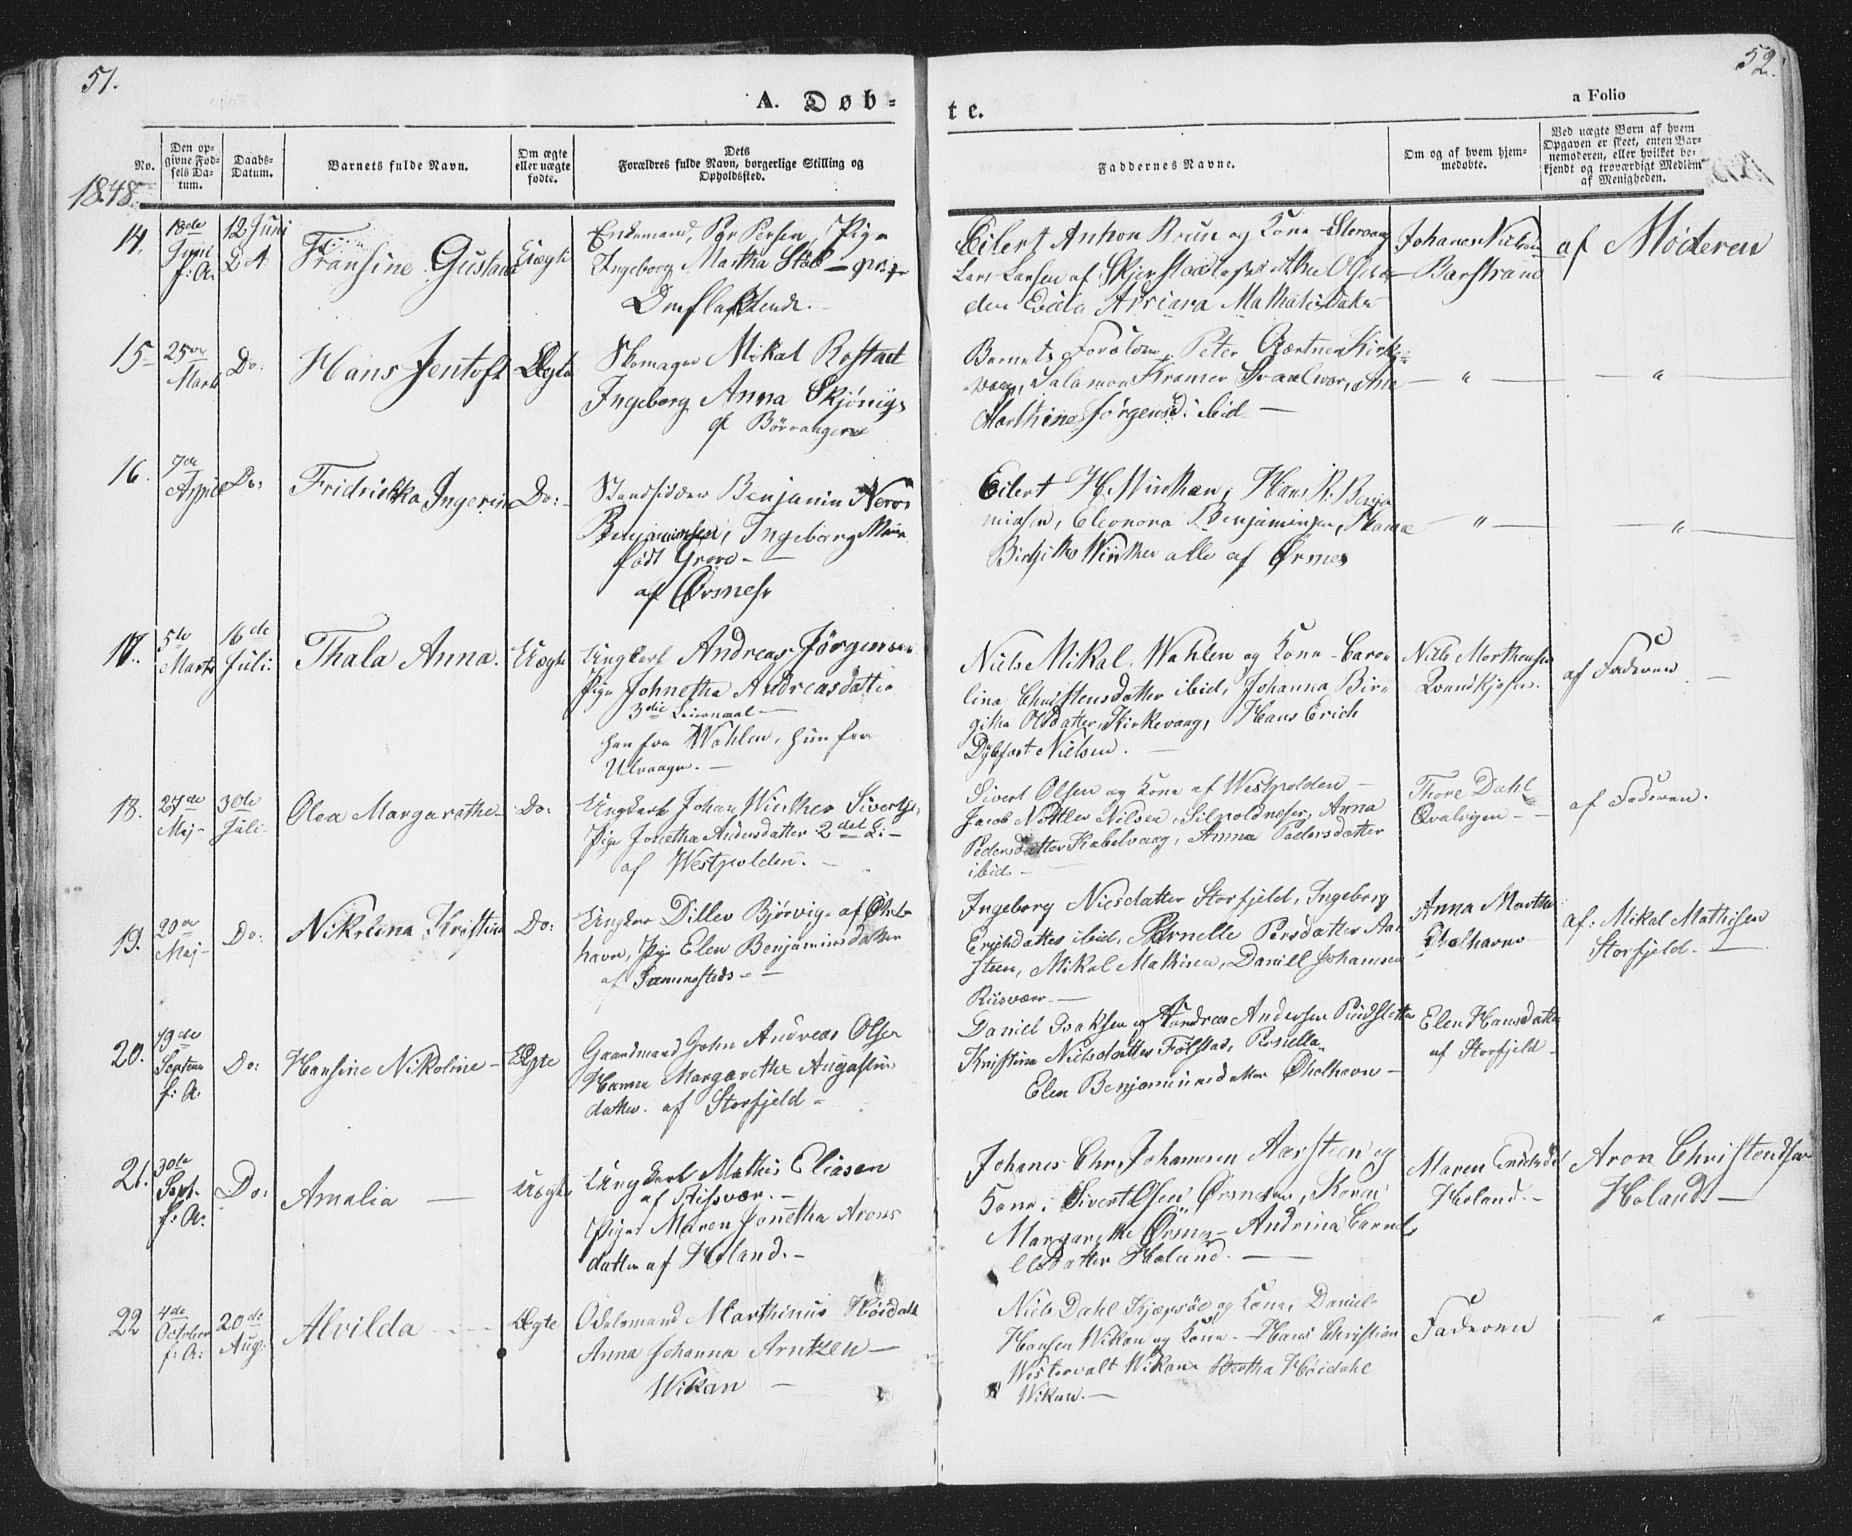 51.
52.
A. Døb-
te.
a Folio
No.
Den op-
givne Fød-
sels Da-
tum.
Daabs-
Datum.
Barnets fulde Navn.
Om ægte
eller uægte
fødte.
Dets
Forældres fulde Navn, borgerlige Stilling og
Opholdsted.
Faddernes Navne.
Om og af hvem hjem-
medøbte.
Ved uægte Børn af hvem
Opgaven er skeet, enten Bar-
nemoderen, eller hvilket be-
kjendt og troværdigt Medlem
af Menigheden.
1848.
14.
18de
April
f: A.
12 Juni
Fransine Gustava
Uægte
Enkemand, Per Persen, Pige
Ingeborg Martha
Eilert Anton Brun og Kone
Lars Larsen af
Johanes Nielsen
Barstrand
af Moderen
15
25de
Marts
Do:
Hans Jentoft
Ægte
Skomager Mikal Rostad
Ingeborg Anna
af Børvaagen
Barnets Forældre, Peter Gærtner Kirke-
vaag, Salamon Kramer
Marthine Jørgensd: ibid —
— " —
— " —
16.
7de
April
Do:
Fridrikka Ingerine
Do:
Strandsidder Benjamin
Benjaminsen, Ingeborg
født Grove —
af Ørnes
Eilert H. Winther, Hans R. Benja
minsen, Eleonora Benjaminsen, Hanna
Birgitha Winther alle af Ørnes
— " —
— " —
17.
5te
Marts
16de
Juli.
Thala Anna.
Uægte
Ungkarl Andreas Jørgensen
Pige Johnetha Andreasdatter
3die Leiermaal —
han fra Wahlen, hun fra
Ulvaagen. —
Niels Mikal Wahlen og Kone Caro-
lina Christensdatter ibid, Johanna Bir-
githa Olsdatter, Kirkevaag, Hans Erich
Dybfæst Nielsen. —
Niels Morthensen
af Faderen —
18.
27de
Maj-
30de
Juli-
Olea Margarethe-
Do:
Ungkarl Johan Winther Sivertsen,
Pige Jonetha Andersdatter 2det L: —
af Westpolden. —
Sivert Olsen og Kone af Westpolden —
Jacob Nilsen, Anna
Pedersdatter Kabelvaag, Anna Pedersdatter
ibid —
Thore Dahl
Qvalvigen —
af Faderen.
19.
20de
Maj-
Do:
Nikolina Kristina
Do:
Ungkar Dillev Bjørvig af
havn, Pige Elen Benjaminsdatter
af Sammesteds —
Ingeborg Nielsdatter Storfjeld, Ingeborg
Erichdatter ibid, Pernelle Persdatter Aar
steen, Mikal Mathisen, Daniel Johannsen
Riisvær. —
Anna Martha
af: Mikal Mathisen
Storfjeld. —
20.
19de
Septem
f: A.
Do:
Hansine Nikoline-
Ægte
Gaardmand John Andreas Olsen
Hanna Margarethe Augustin
datter. af Storfjeld —
Daniel Isaksen og Andreas Andersen
Kristine Nielsdatter
Elen Benjaminsdatter —
Elen Hansdatter
af Storfjeld —
21.
30te
Sept.
f: A:
Do:
Amalia —
Uægte
Ungkarl Mathis Eliasen
af Riisvær. —
Pige Maren Jonetha Arons
datter af Holand. —
Johanes Chr. Johannsen Aarsteen og
Kone, Sivert Olsen Ørsnæs, Karen
Margarethe Ørsnes — Andrina Carnel
isdatter Holand. —
Maren
Holand. —
Aron Christensen
Holand. —
22
4de
October
f: A:
20de
Aug:
Alvilda —
Ægte
Odelsmand Marthinus Høisdahl
Anna Johanna Arntzen —
Wikan —
Niels Dahl Kjæpsøe og Kone, Daniel
Hansen Wikan og Kone — Hans Christian
Westervalt Wikan Bertha Høisdahl
Wikan. —
Faderen
"